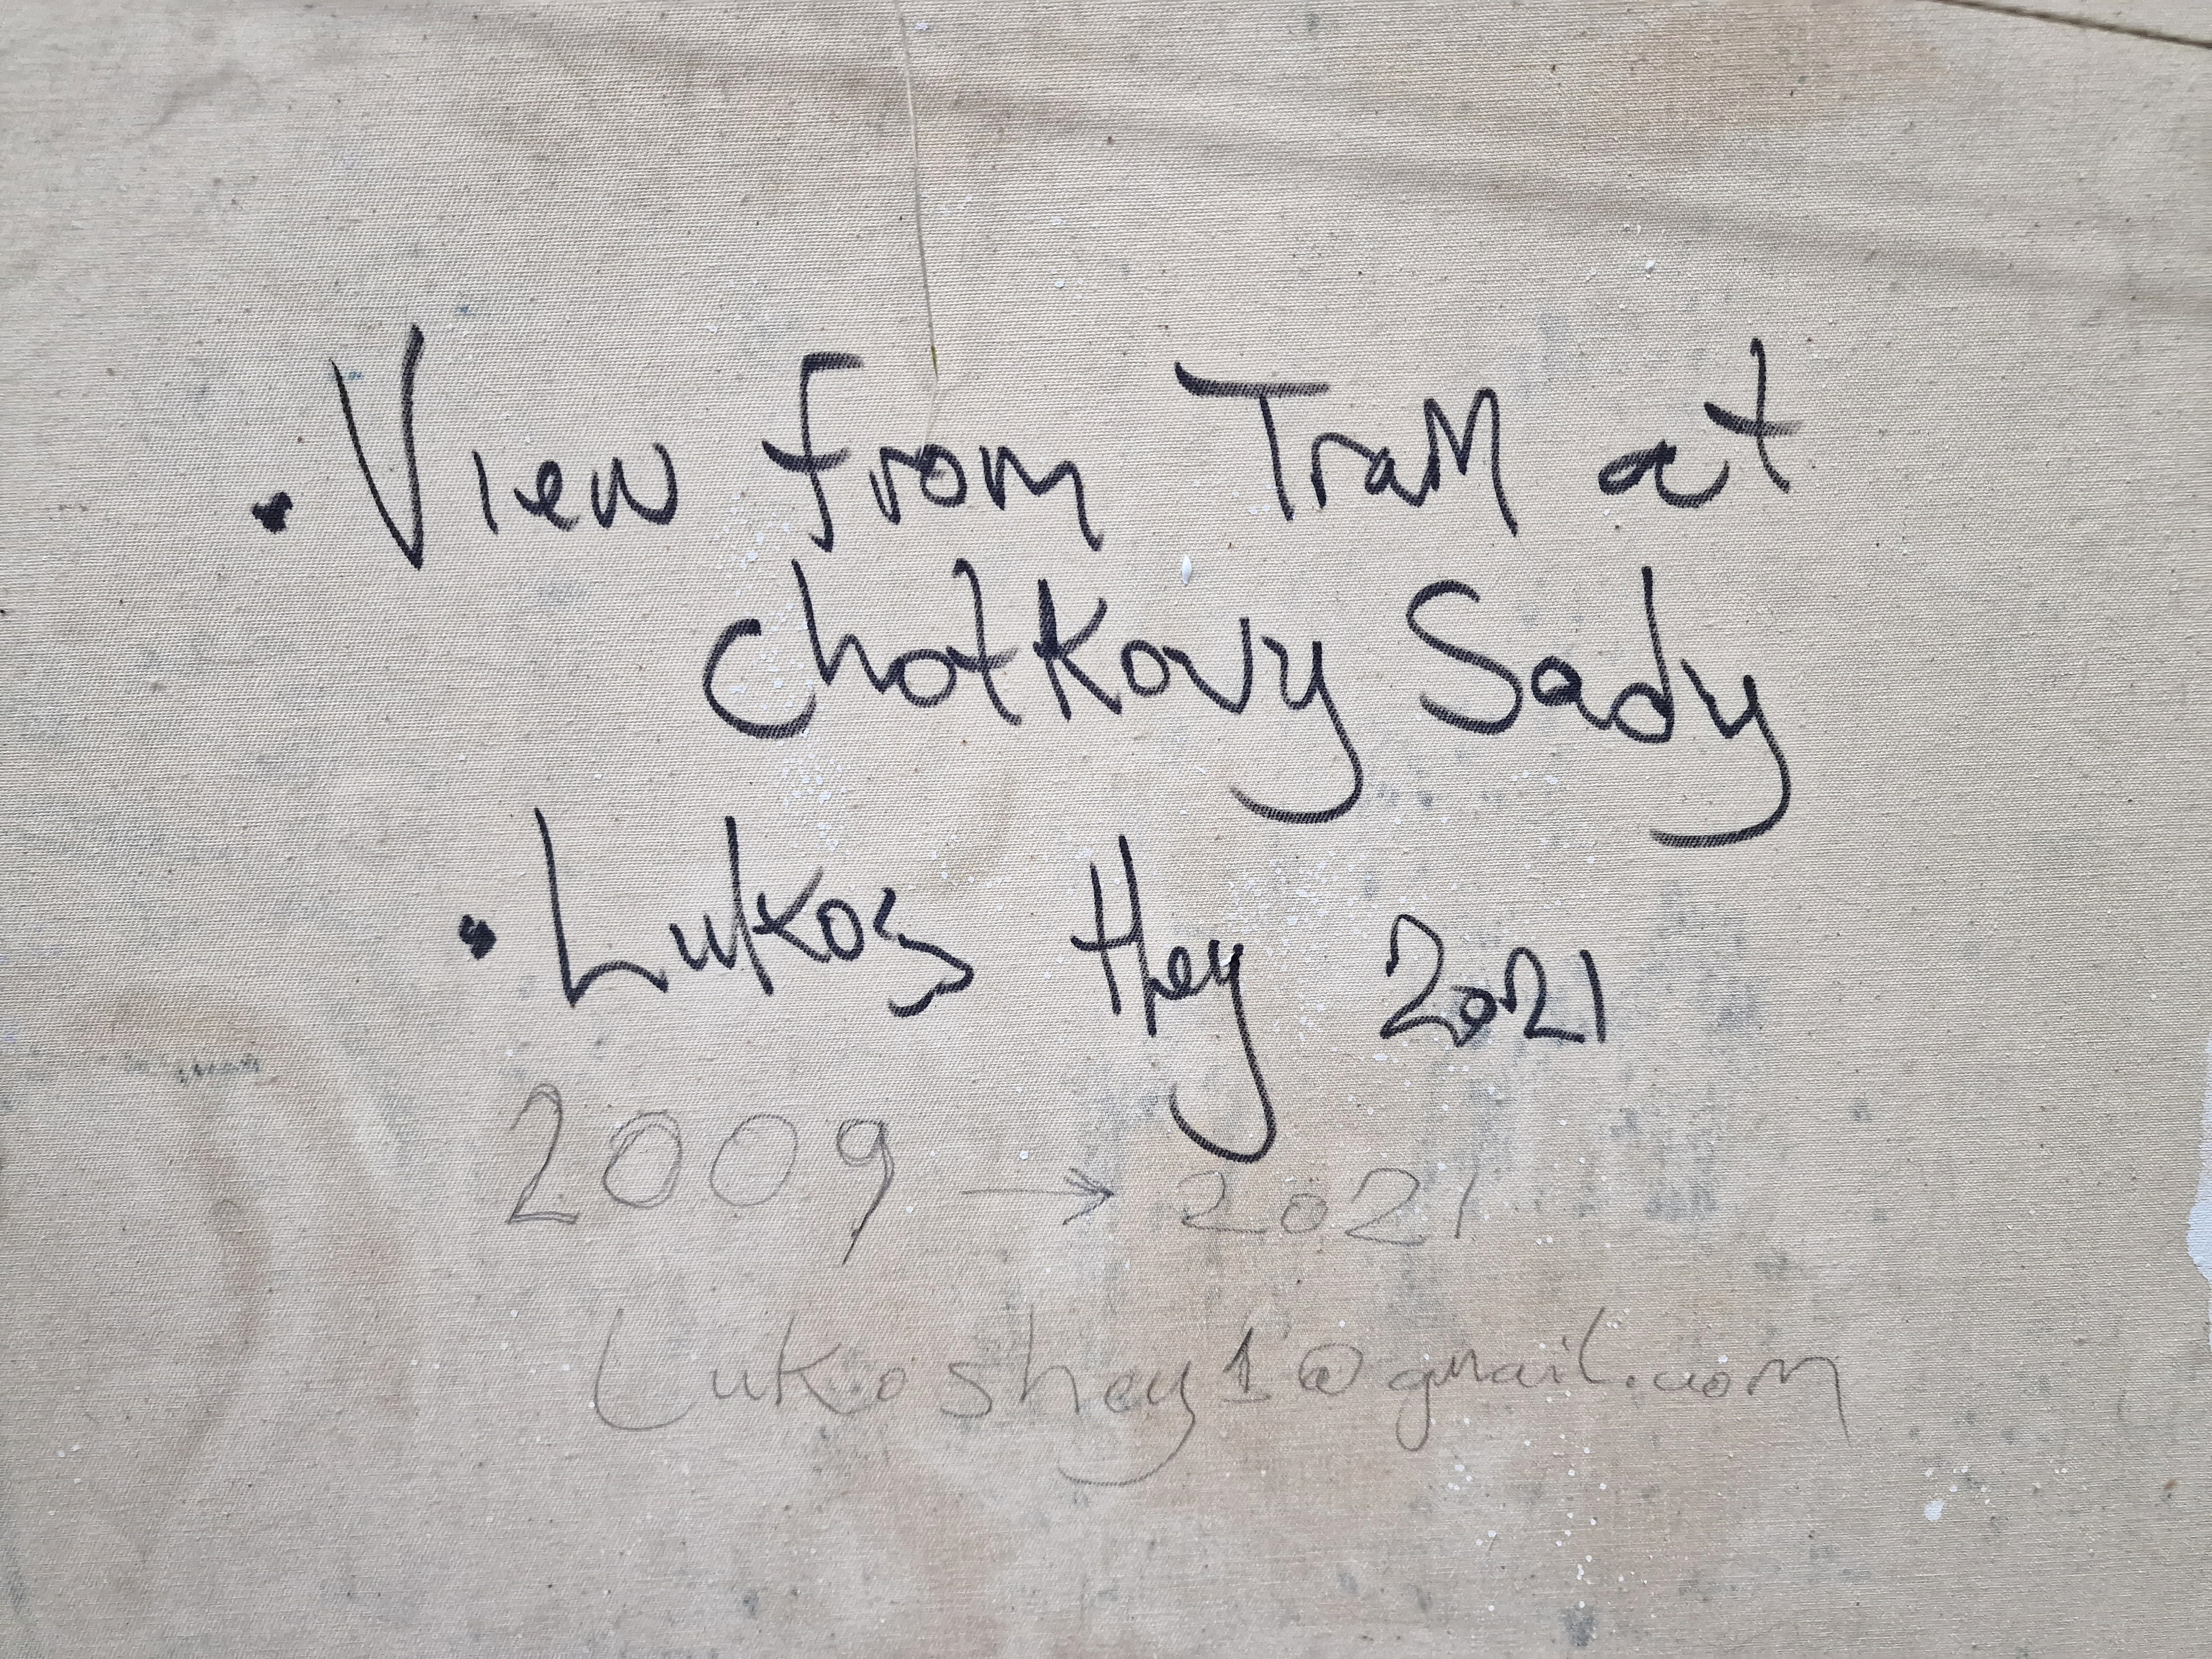 • View from Tram at
Chotkovy Sady
• Lukos Hey 2021
2009 → 2021
Lukoshey1@gmail.com